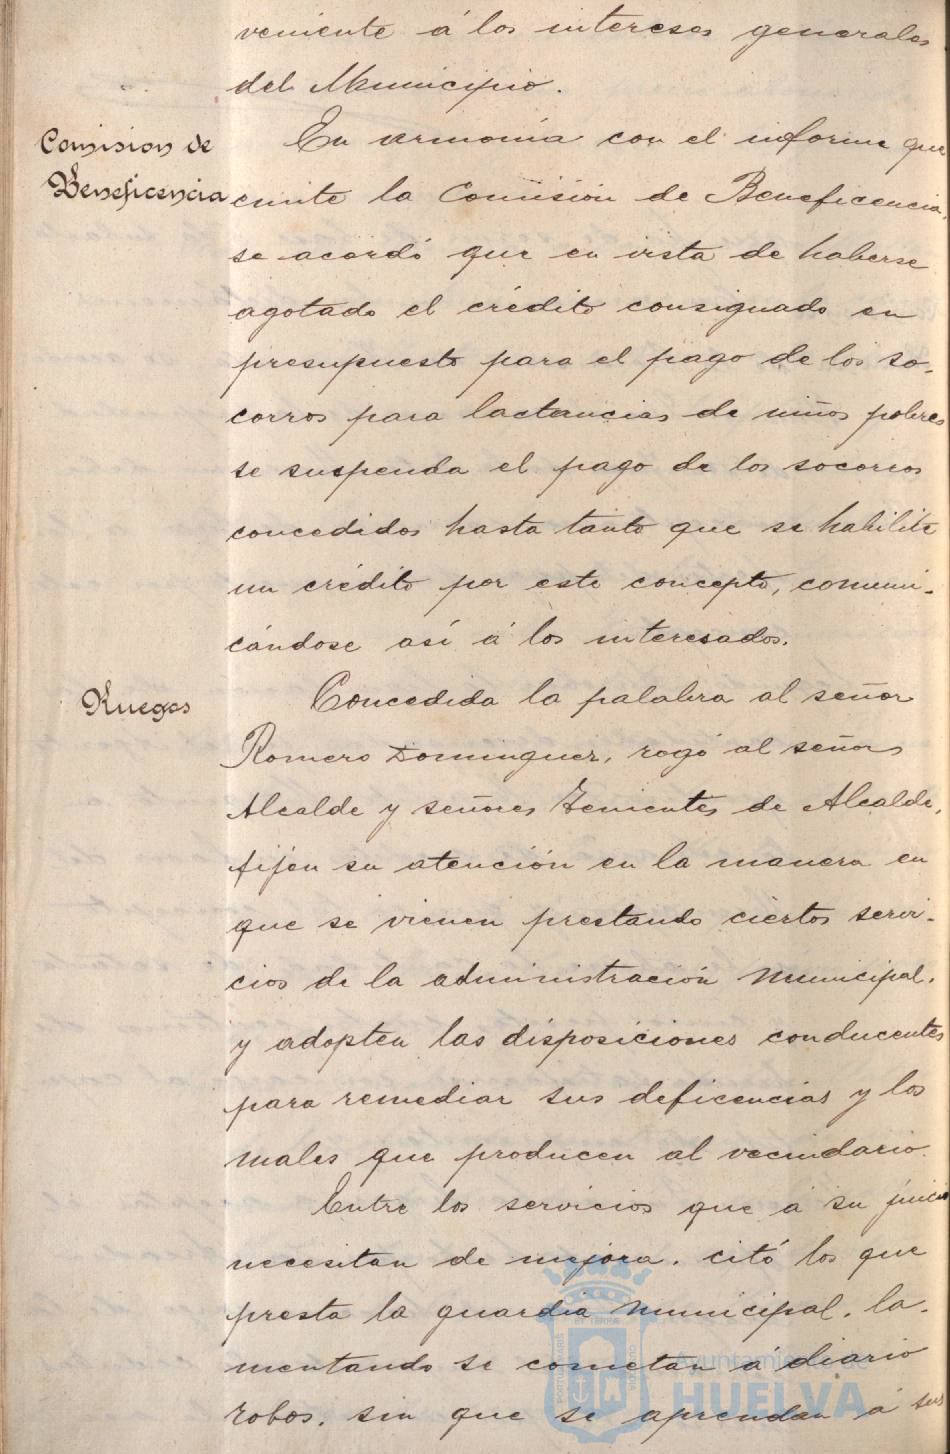 veniente á los intereses generales
del Municipio.
Comision de
Beneficencia
En armonía con el informe que
emite la Comisión de Beneficencia,
se acordó que en vista de haberse
agotado el crédito consignado en
presupuesto para el pago de los so-
corros para lactancias de niños pobres
se suspenda el pago de los socorros
concedidos hasta tanto que se habilite
un crédito por este concepto, comuni-
cándose así á los interesados.
Ruegos
Concedida la palabra al señor
Romero Dominguez, rogó al señor
Alcalde y señores Tenientes de Alcalde,
fijen su atención en la manera en
que se vienen prestando ciertos servi-
cios de la administración municipal,
y adopten las disposiciones conducentes
para remediar sus deficencias y los
males que producen al vecindario.
Entre los servicios que á su juicio
necesitan de mejora, citó los que
presta la guardia municipal, la-
mentando se cometan á diario
robos, sin que se aprendan á sus
Ayuntamiento de
HUELVA